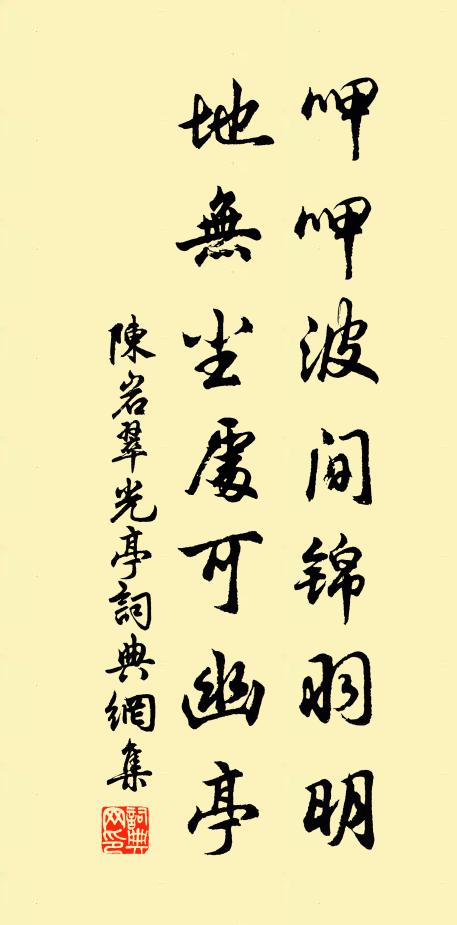 呷呷波间锦羽明
地無尘處可幽亭
陳岩翠光亭詞典網集
詞典网印